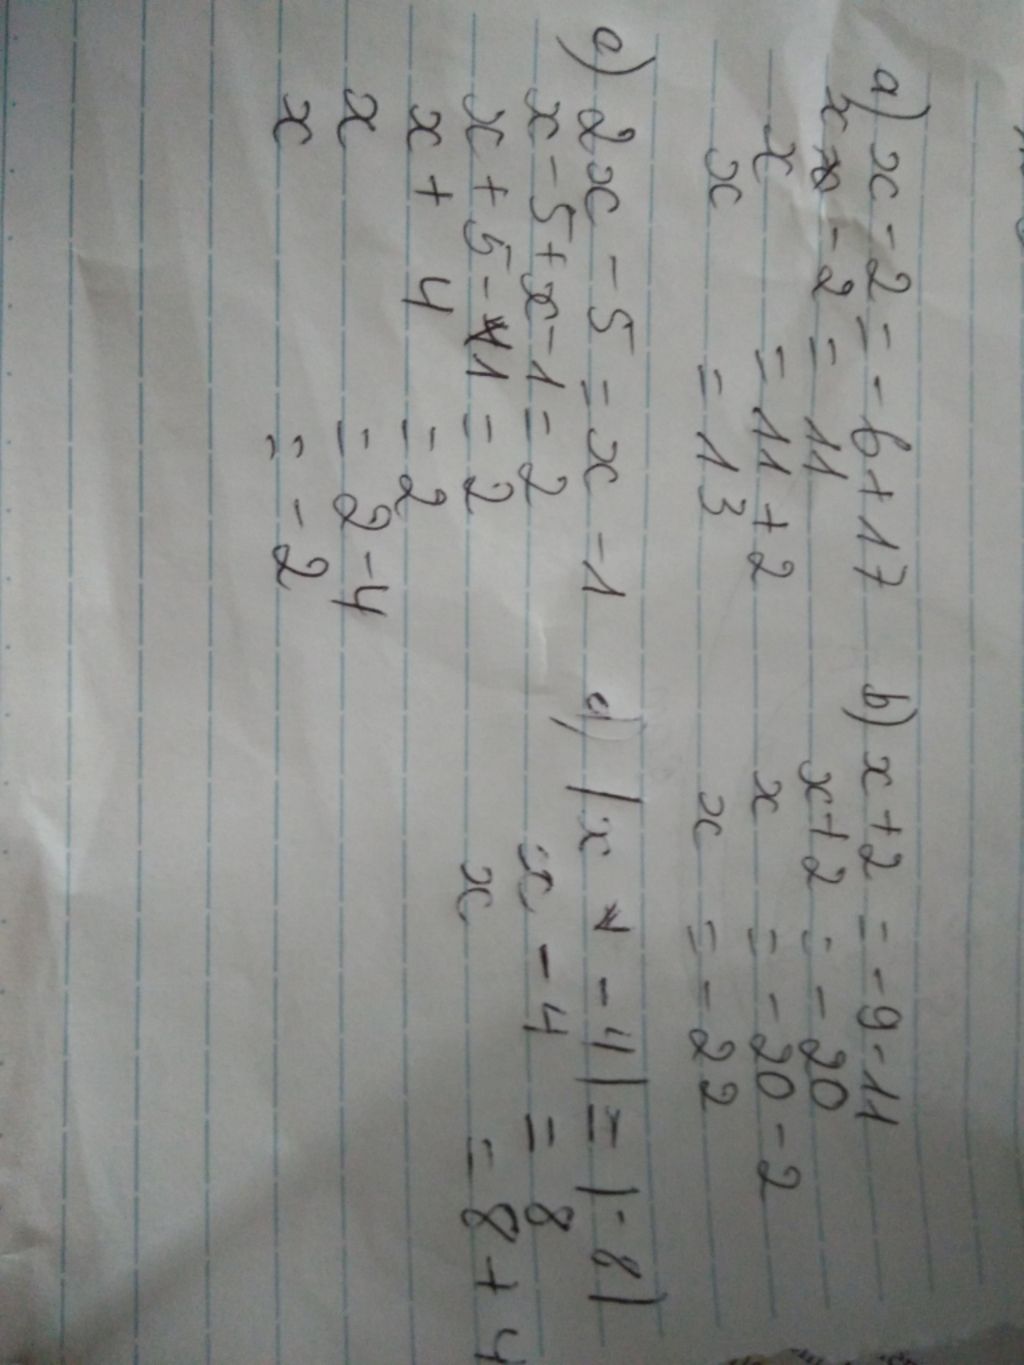 a) x - 2 = - 6 + 17
x - 2 = 11
x = 11 + 2
x = 13
b) x + 2 = - 9 - 11
x + 2 = - 20
x = - 20 - 2
x = - 22
c) 2x - 5 = x - 1
x - 5 + x - 1 = 2
x + 5 - 1 = 2
x + 4 = 2
x = 2 - 4
x = - 2
d) | x - 4 | = | - 8 |
x - 4 = 8
x = 8 + 4